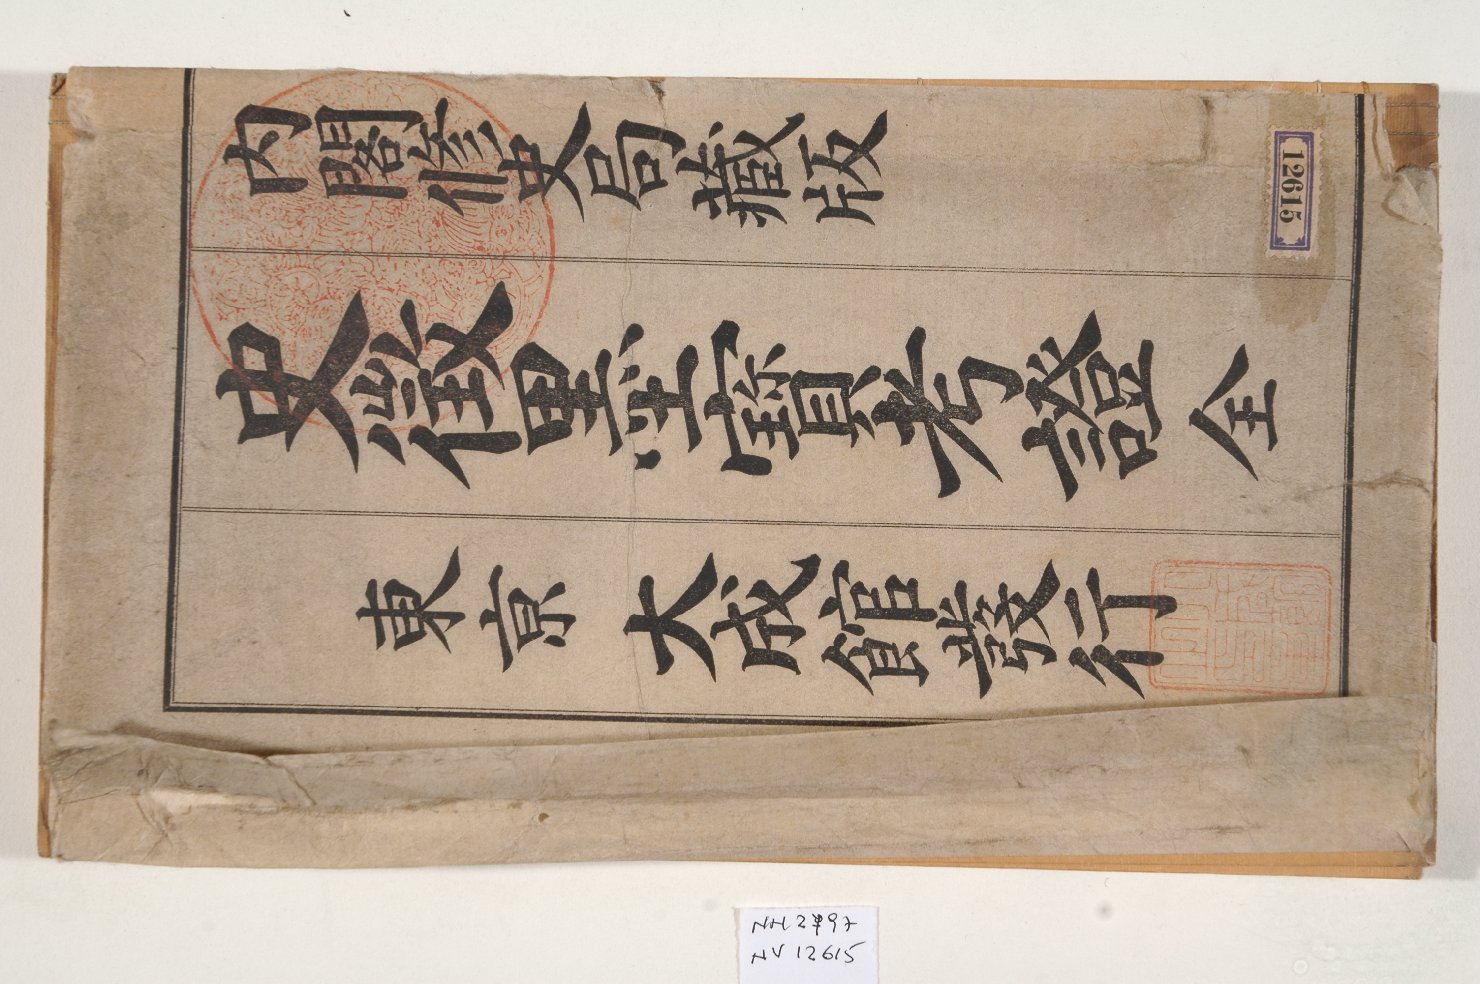 內閣修史局藏版
史徵墨寶考證 全
東京 大成館發行
12615
NH 2797
NV 12615